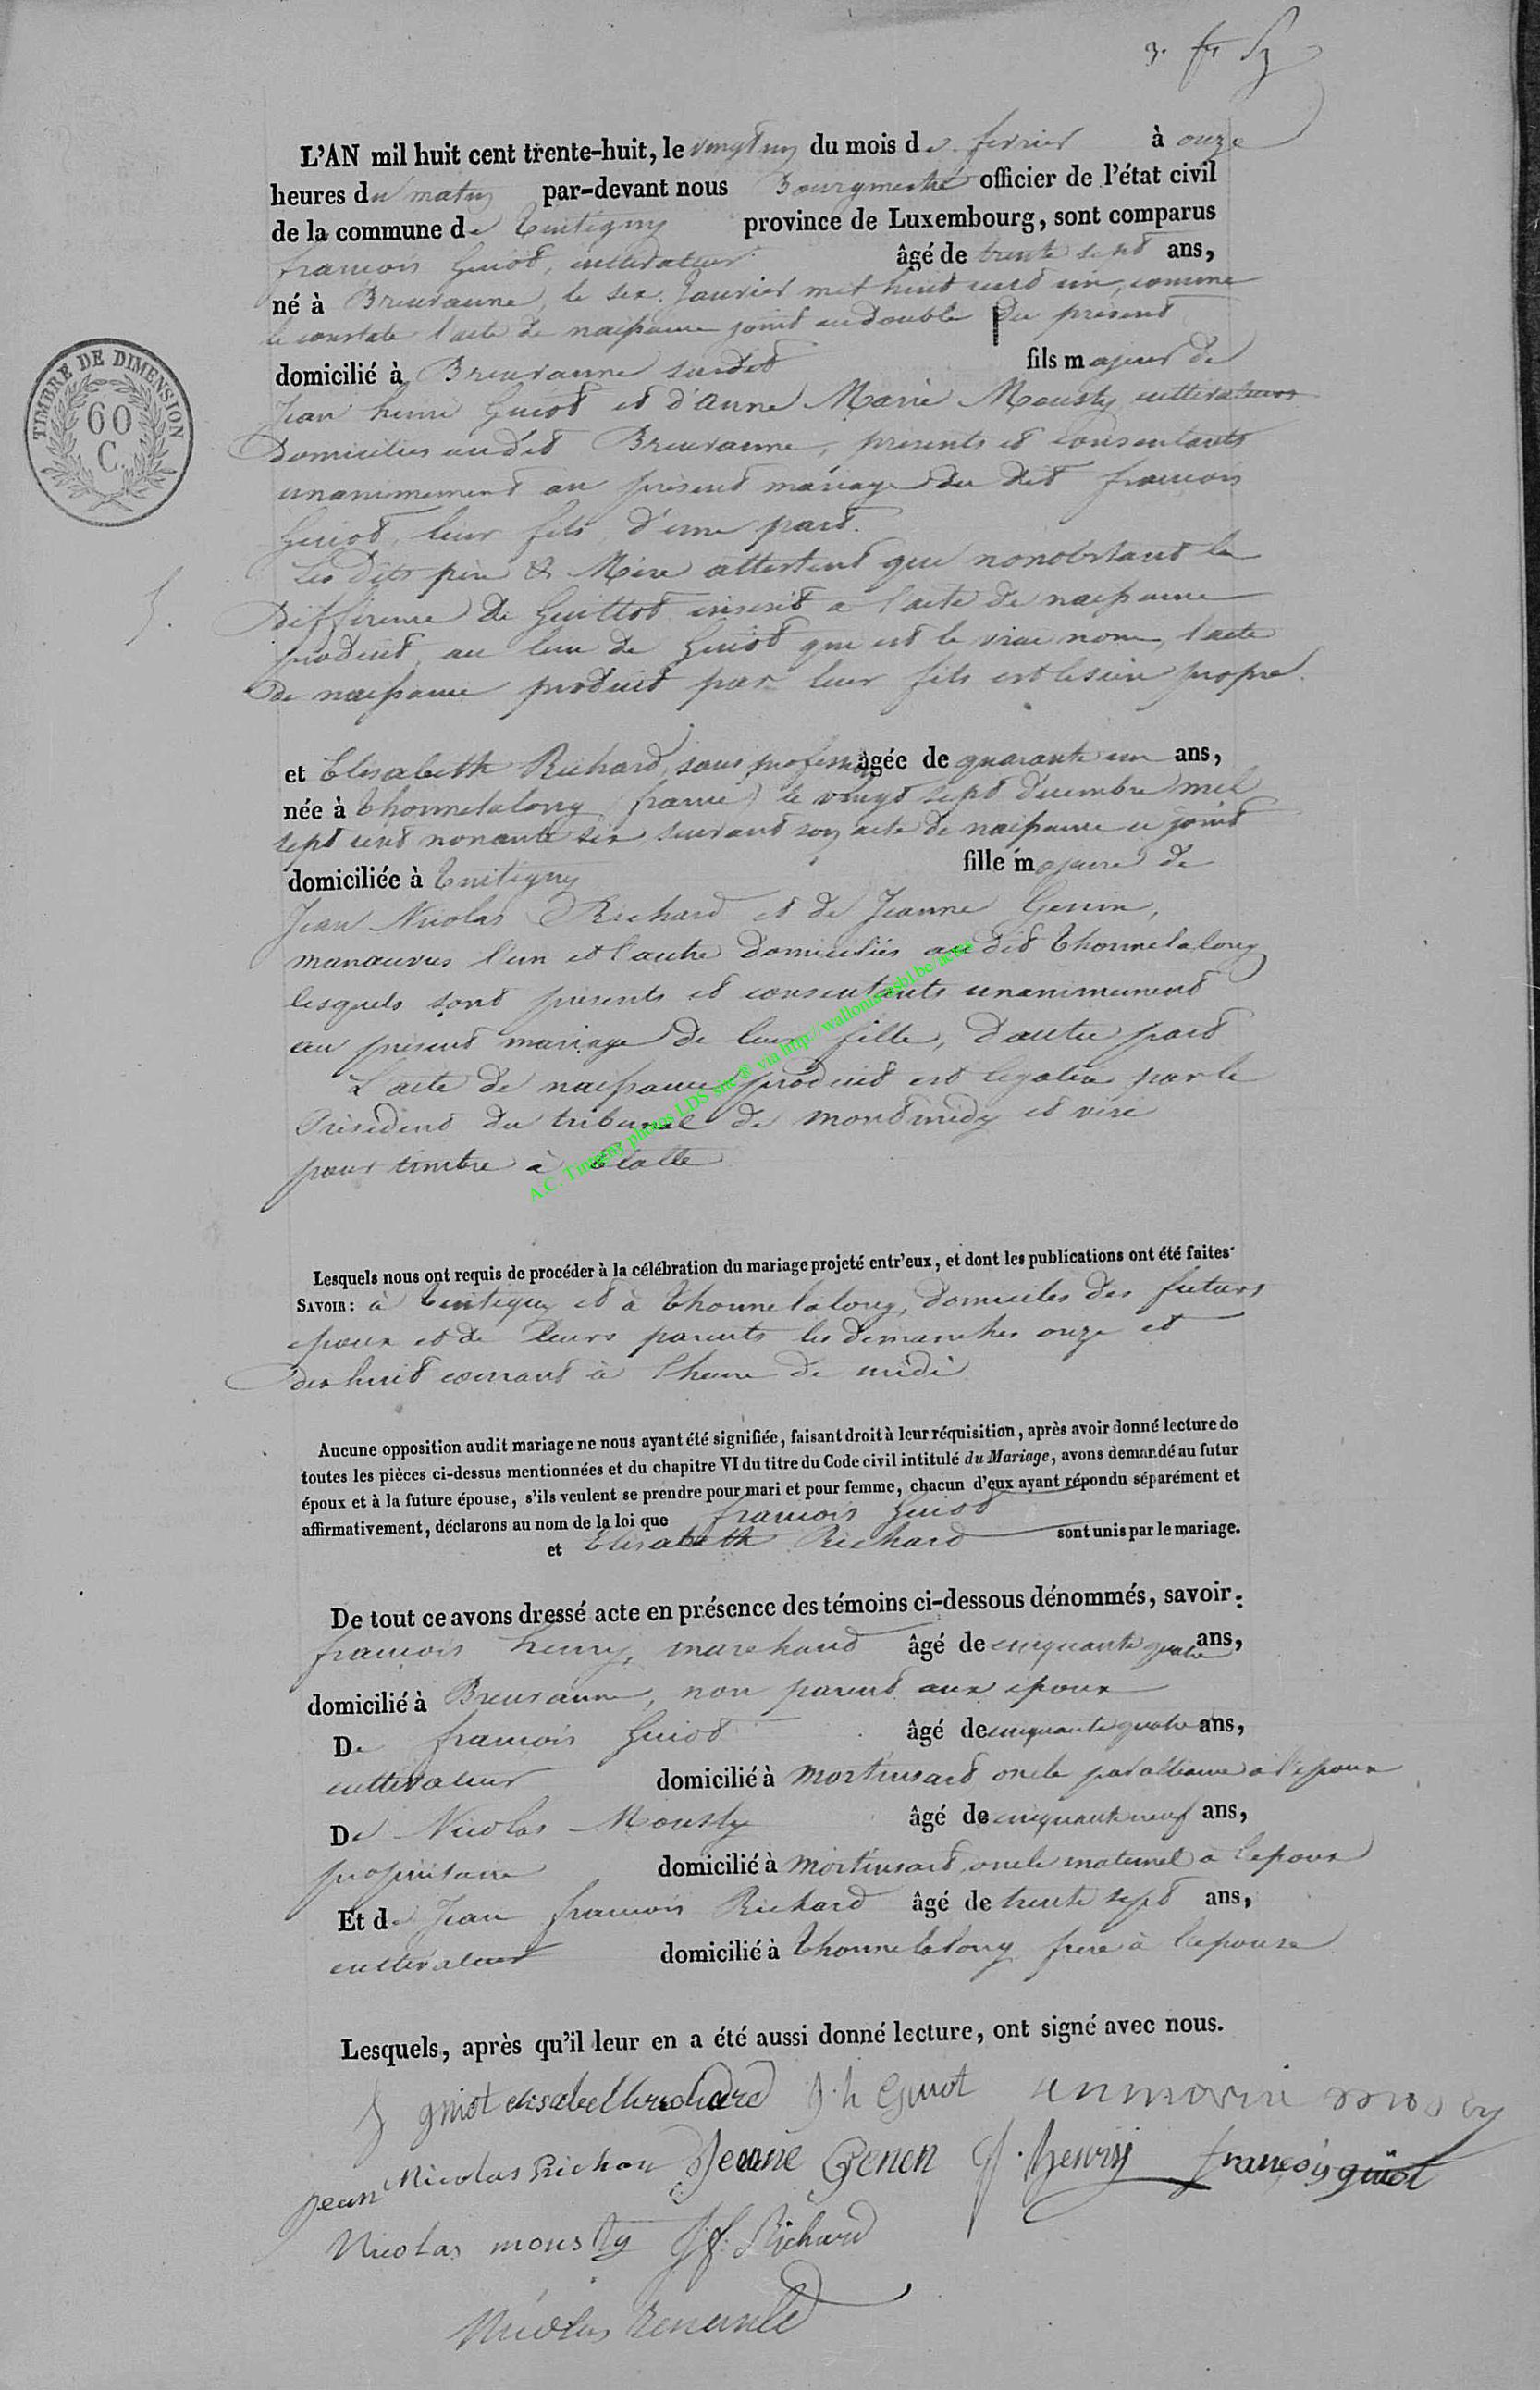 3.
TIMBRE DE DIMENSION
60
C.
5.
L'AN mil huit cent trente-huit, le vingt un du mois de fevrier à onze
heures du matin par-devant nous Bourgmestre officier de l'état civil
de la commune de Tintigny province de Luxembourg, sont comparus
francois Guiot, cultivateur âgé de trente sept ans,
né à Breuvanne, le six Janvier mil huit cent un, comme
le constate l'acte de naissance joint au double du présent
domicilié à Breuvanne susdit fils majeur de
Jean henri Guiot et d'Anne Marie Mousty cultivateurs
Domiciliés audit Breuvanne, présents et consentants
unanimement au présent mariage du dit francois
Guiot, leur fils, d'une part.
Les dits père & Mère attestent que nonobstant la
différence de Guillot inscrit a l'acte de naissance
produit, au lieu de Guiot qui est le vrai nom, l'acte
de naissance produit par leur fils est le sien propre.
et Elisabeth Richard, sans profession âgée de quarante un ans,
née à Thonnelalong (france) le vingt sept décembre mil
sept cent nonante six, suivant son acte de naissance ci joint
domiciliée à Tintigny fille majeure de
Jean Nicolas Richard et de Jeanne Genin,
manœuvres l'un et l'autre domiciliés au dit Thonnelalong
lesquels sont présents et consentants unanimement
au présent mariage de leur fille, d'autre part
L'acte de naissance produit est légalisé par le
Président du tribunal de montmédy et visé
pour timbre à Etalle
A.C. Tintigny photos LDS sur ® via http://wallonia-asbl.be/actes
Lesquels nous ont requis de procéder à la célébration du mariage projeté entr'eux, et dont les publications ont été faites
SAVOIR: à Tintigny et à Thonnelalong, domiciles des futurs
epoux et de leurs parents les dimanches onze et
dix huit courant à l'heure de midi
Aucune opposition audit mariage ne nous ayant été signifiée, faisant droit à leur réquisition, après avoir donné lecture de
toutes les pièces ci-dessus mentionnées et du chapitre VI du titre du Code civil intitulé du Mariage, avons demandé au futur
époux et à la future épouse, s'ils veulent se prendre pour mari et pour femme, chacun d'eux ayant répondu séparément et
affirmativement, déclarons au nom de la loi que francois Guiot
et Elisabeth Richard sont unis par le mariage.
De tout ce avons dressé acte en présence des témoins ci-dessous dénommés, savoir:
françois henry, marchand âgé de cinquante quatre ans,
domicilié à Breuvanne, non parent aux époux
De francois Guiot âgé de cinquante quatre ans,
cultivateur domicilié à Mortinsart oncle par alliance à l'epoux
De Nicolas Mousty âgé de cinquante neuf ans,
propriétaire domicilié à Mortinsart, oncle maternel à l'epoux
Et de Jean francois Richard âgé de trente sept ans,
cultivateur domicilié à Thonnelalong frere à l'epouse
Lesquels, après qu'il leur en a été aussi donné lecture, ont signé avec nous.
f guiot elisabeth richard J. h Guiot anmarie
jean Nicolas Richar Jeanne Genen f. henry françois guiot
Nicolas mousty J f. Richard
Nicolas